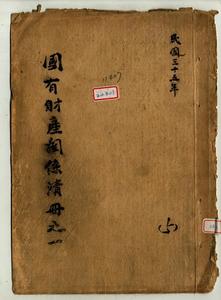 民國三十五年
國有財產關係清冊之一